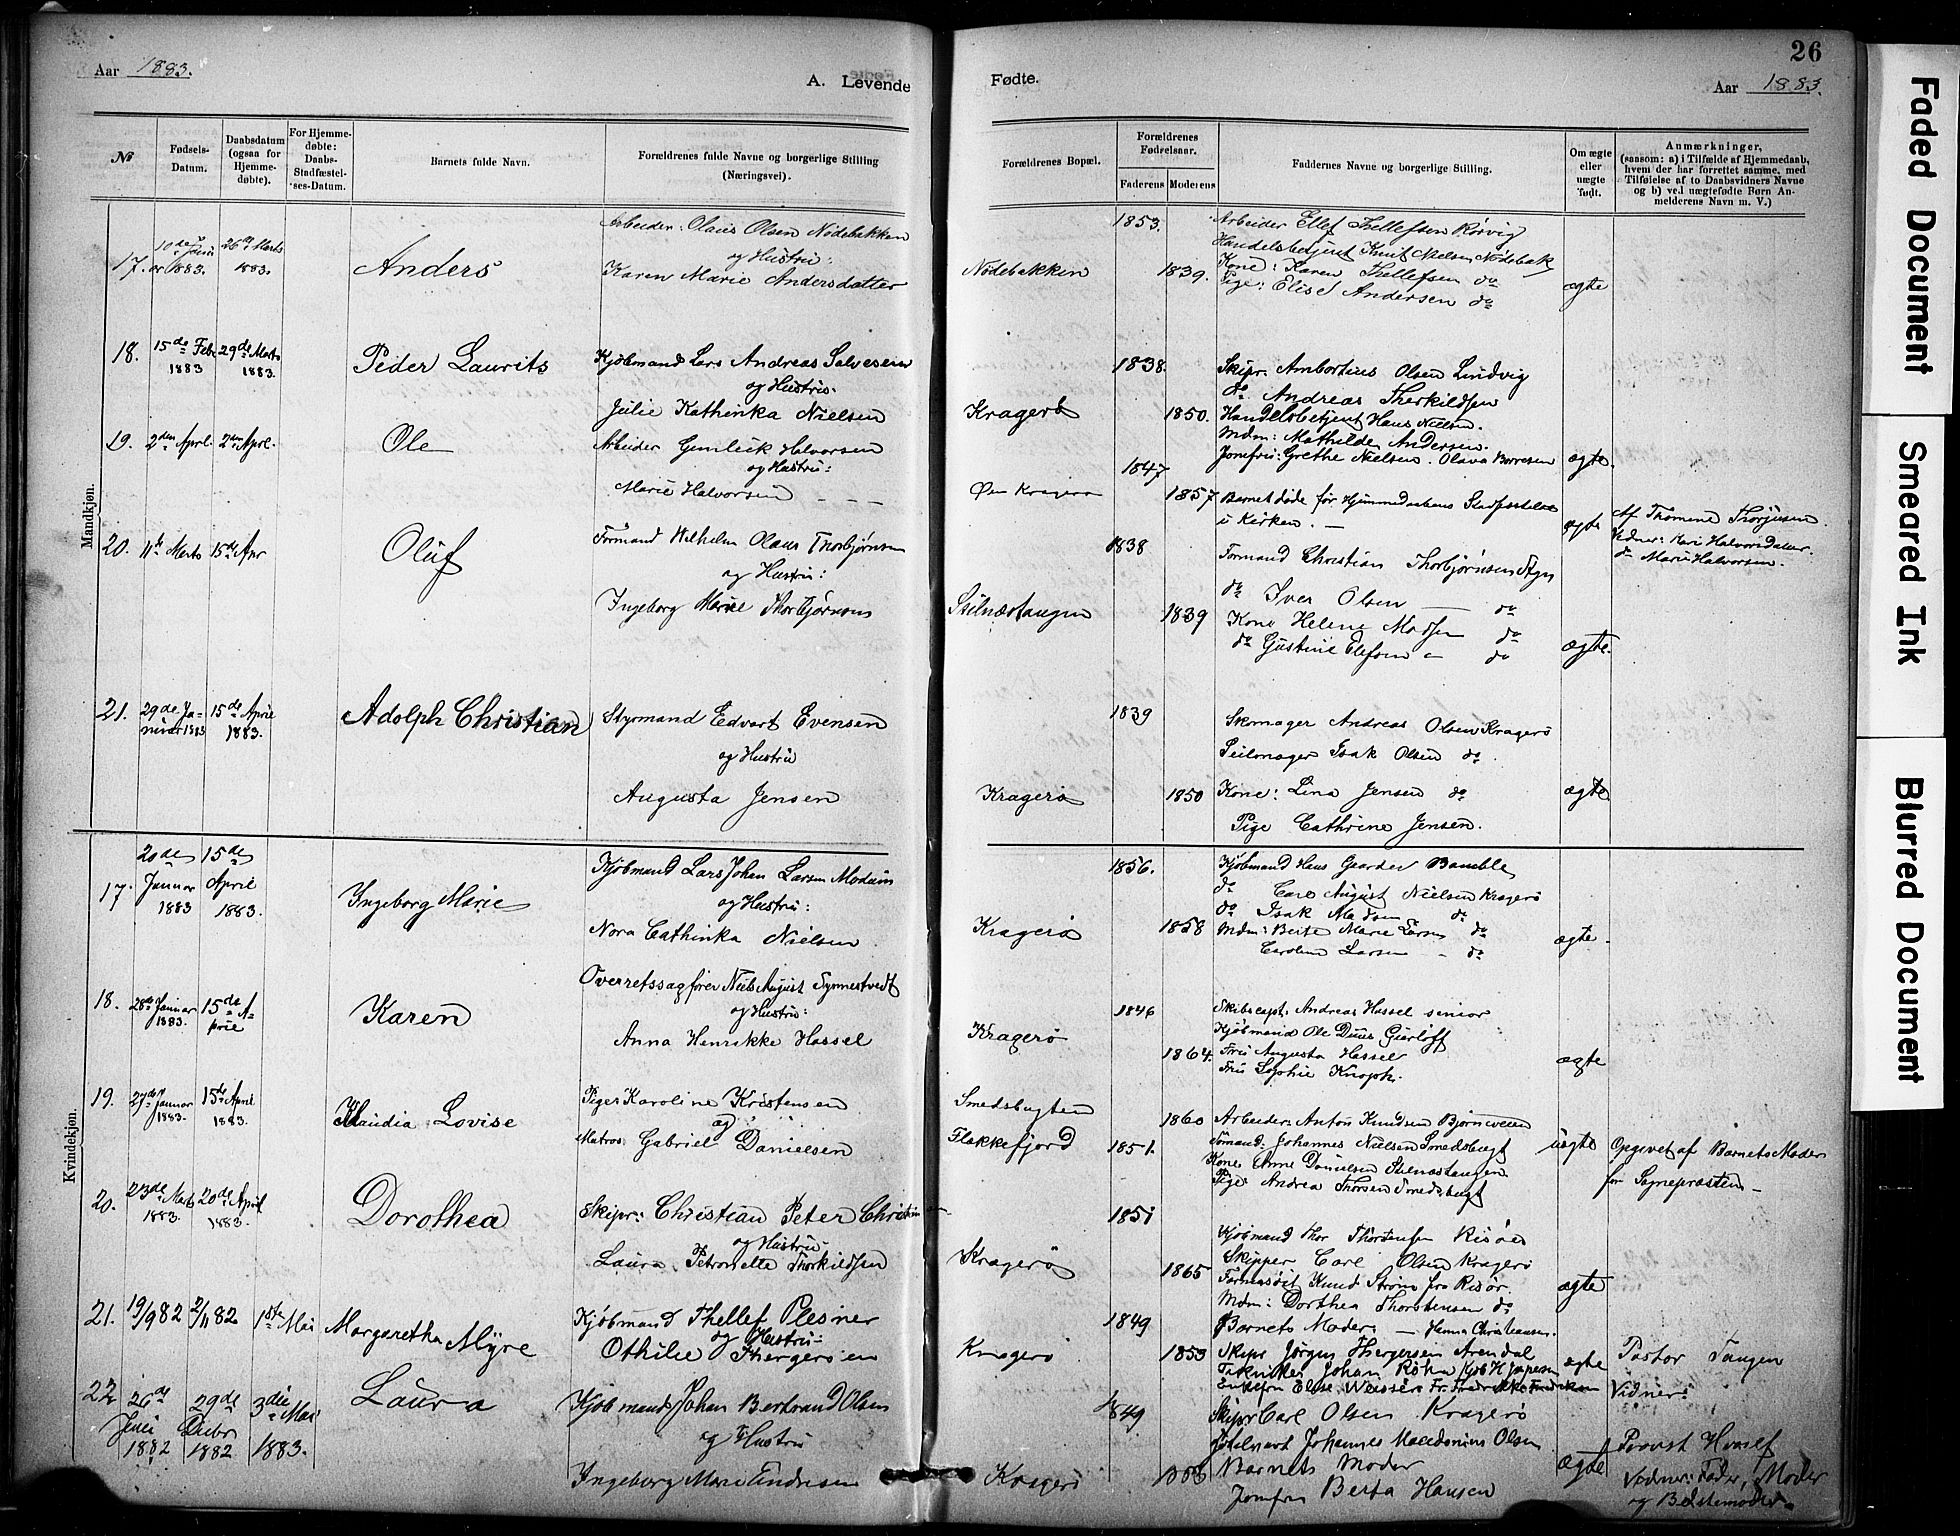 Aar 1883.
A. Levende
Fødte.
26
Aar 1883.
No
Fødsels-Datum.
Daabsdatum (ogsaa for Hjemme-døbte).
For Hjemme-døbte: Daabs-Stadfæstel-ses-Datum.
Barnets fulde Navn.
Forældrenes fulde Navne og borgerlige Stilling (Næringsvei).
Forældrenes Bopæl.
Forældrenes Fødselsaar.
Faderens
Moderens
Faddernes Navne og borgerlige Stilling.
Om ægte eller uægte født.
Anmærkninger,
(saasom: a) i Tilfælde af Hjemmedaab, hvem der har forrettet samme, med Tilføielse af to Daabsvidners Navne og b) ved uægtefødte Børn An-melderens Navn m. V.)
Mandkjøn.
17. 1883. 26 Marts 1883. Anders
Arbeider: Olaus Olsen Nødebakken
og Hustru:
Karen Marie Andersdatter
Nødebakken 1853. 1839.
Arbeider Ellef Thellefsen Rørvig
Handelsbetjent Knut Nielsen Nødebak
Kone: Karen Thellefsen do
Pige: Elise Andersen do
ægte
18. 15de Febr 1883 29de Marts 1883. Peder Laurits
Kjöbmand Lars Andreas Salvesen
og Hustru:
Julie Kathinka Nielsen
Kragerö 1838. 1850.
Skipr. Ambortius Olsen Lindvig
do Andreas Therkildsen
Handelsbetjent Hans Nielsen.
Mdm: Mathilde Andersen.
Jomfru: Grethe Nielsen. Olava Borresen
ægte.
19. 2den Aprl. 2den Aprl. Ole
Arbeider Gunleik Halvorsen
og Hustru:
Marie Halvorsen
Kragerø 1847 1857
Barnet døde før Hjemmedaabens Stadfæstelse
i Kirken.
ægte
Af Thomine Thorjusen.
Vidner: Mari Halvorsdatter.
do Marie Halvorsen.
20. 11te Marts 15de Apr Oluf
Formand Wilhelm Olaus Thorbjørnsen
og Hustru:
Ingeborg Marie Thorbjørnsen
Stilnæstangen 1838 1839
Formand Christian Thorbjørnsen
do Iver Olsen do
Kone Helene Madsen do
do Gustine Elefsen do
ægte.
21. 29de Januar 1883 15de April 1883. Adolph Christian
Styrmand Edvart Evensen
og Hustru
Augusta Jensen
Kragerø 1839 1850
Skomager Andreas Olsen Kragerø
Seilmager Isak Olsen do
Kone: Lina Jensen do
Pige Cathrine Jensen.
ægte
Kvindekjøn.
17. 20de Januar 1883 15de April 1883. Ingeborg Marie
Kjöbmand Lars Johan Larsen
og Hustru:
Nora Cathinka Nielsen
Kragerø 1856. 1858
Kjöbmand Hans Bamble
do Carl August Nielsen Kragerø
do Isak Madsen do
Mdm: Berte Marie Larsen do
Caroline Larsen do
ægte.
18. 28de Januar 1883. 15de April Karen
Overretssagfører Niels August Synnestvedt
og Hustru:
Anna Henrikke Hassel
Kragerø 1846 1864.
Skibscapt. Andreas Hassel senior
Kjöbmand Ole Duus Gierløff
Fru Augusta Hassel
Fru Sophie Knoph.
ægte
19. 27de Januar 1883. 15de April 1883. Klaudia Lovise
Pige: Karoline Kristensen
og
Matros: Gabriel Danielsen
Smedsbugten
Flakkefjord 1851. 1860
Arbeider: Anton Knudsen Bjørneveien
Johannes Nielsen Smedsbugt
Kone Anne Danielsen
Pige Andrea Thorsen Smedsbugt
uægte
Opgivet af Barnets Moder
for Sognepræsten
20. 23de Marts 1883. 20de April 1883. Dorothea
Skipr: Christian Peter
og Hustru
Laura Petronelle Thorkildsen
Kragerø 1851 1865
Kjöbmand Thor Thorstensen Risøer
Skipper Carl Olsen Kragerø
Knud Strøm fra Risør.
Mdm: Dorthea Thorstensen do
ægte
21. 19/9 82 2/11 82 1ste Mai Margaretha Myre
Kjöbmand Thellef Plesner
og Hustru:
Othilie Thergersen
Kragerø 1849 1853
Barnets Moder Hanna Christensen.
Skipr Jörgen Thergersen Arendal
Johan Röhn
ægte
Pastor Tangen
Vidner:
22 26de Juni 1882 29de Decbr 1882 3die Mai 1883. Laura
Kjöbmand Johan Bertrand Olsen
og Hustru
Ingeborg Marie Andresen
Kragerø 1849
Skipr Carl Olsen Kragerø
Johannes Macedonius Olsen
Barnets Moder
Jomfru Berta Hansen
ægte
Provst Hensel
Vidner: Fader, Moder
og Bedstemoder.
Faded Document
Smeared Ink
Blurred Document